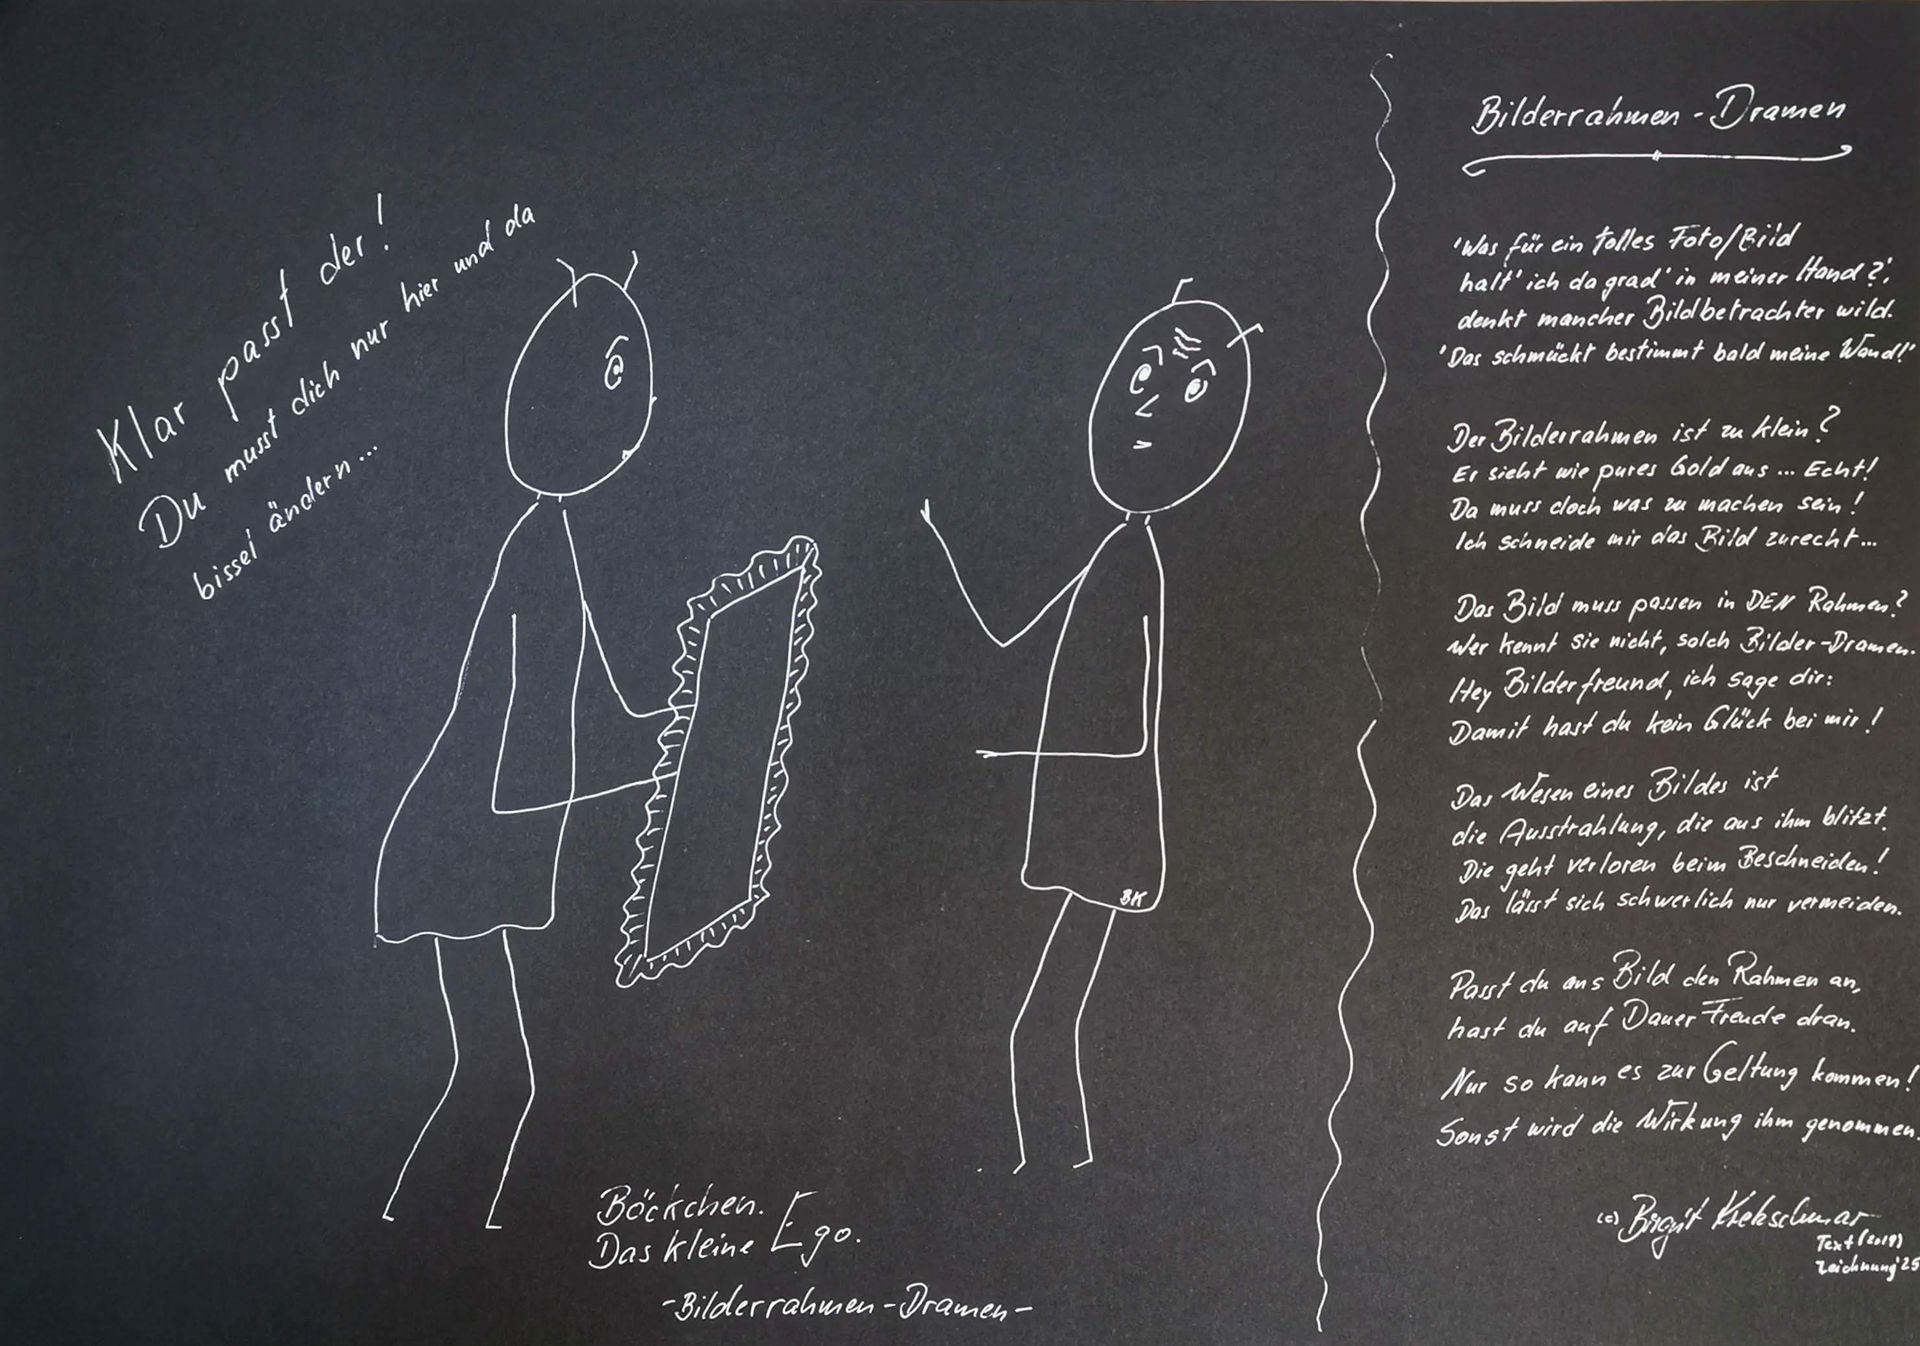 Klar passt der!
Du musst dich nur hier und da
bissel ändern...
BK
Böckchen.
Das kleine Ego.
-Bilderrahmen-Dramen-
Bilderrahmen-Dramen
'Was für ein tolles Foto/Bild
halt' ich da grad' in meiner Hand?',
denkt mancher Bildbetrachter wild.
'Das schmückt bestimmt bald meine Wand!'
Der Bilderrahmen ist zu klein?
Er sieht wie pures Gold aus... Echt!
Da muss doch was zu machen sein!
Ich schneide mir das Bild zurecht...
Das Bild muss passen in DEN Rahmen?
Wer kennt sie nicht, solch Bilder-Dramen.
Hey Bilderfreund, ich sage dir:
Damit hast du kein Glück bei mir!
Das Wesen eines Bildes ist
die Ausstrahlung, die aus ihm blitzt.
Die geht verloren beim Beschneiden!
Das lässt sich schwerlich nur vermeiden.
Passt du ans Bild den Rahmen an,
hast du auf Dauer Freude dran.
Nur so kann es zur Geltung kommen!
Sonst wird die Wirkung ihm genommen.
(c) Birgit Kretzschmar
Text (2019)
Zeichnung '25